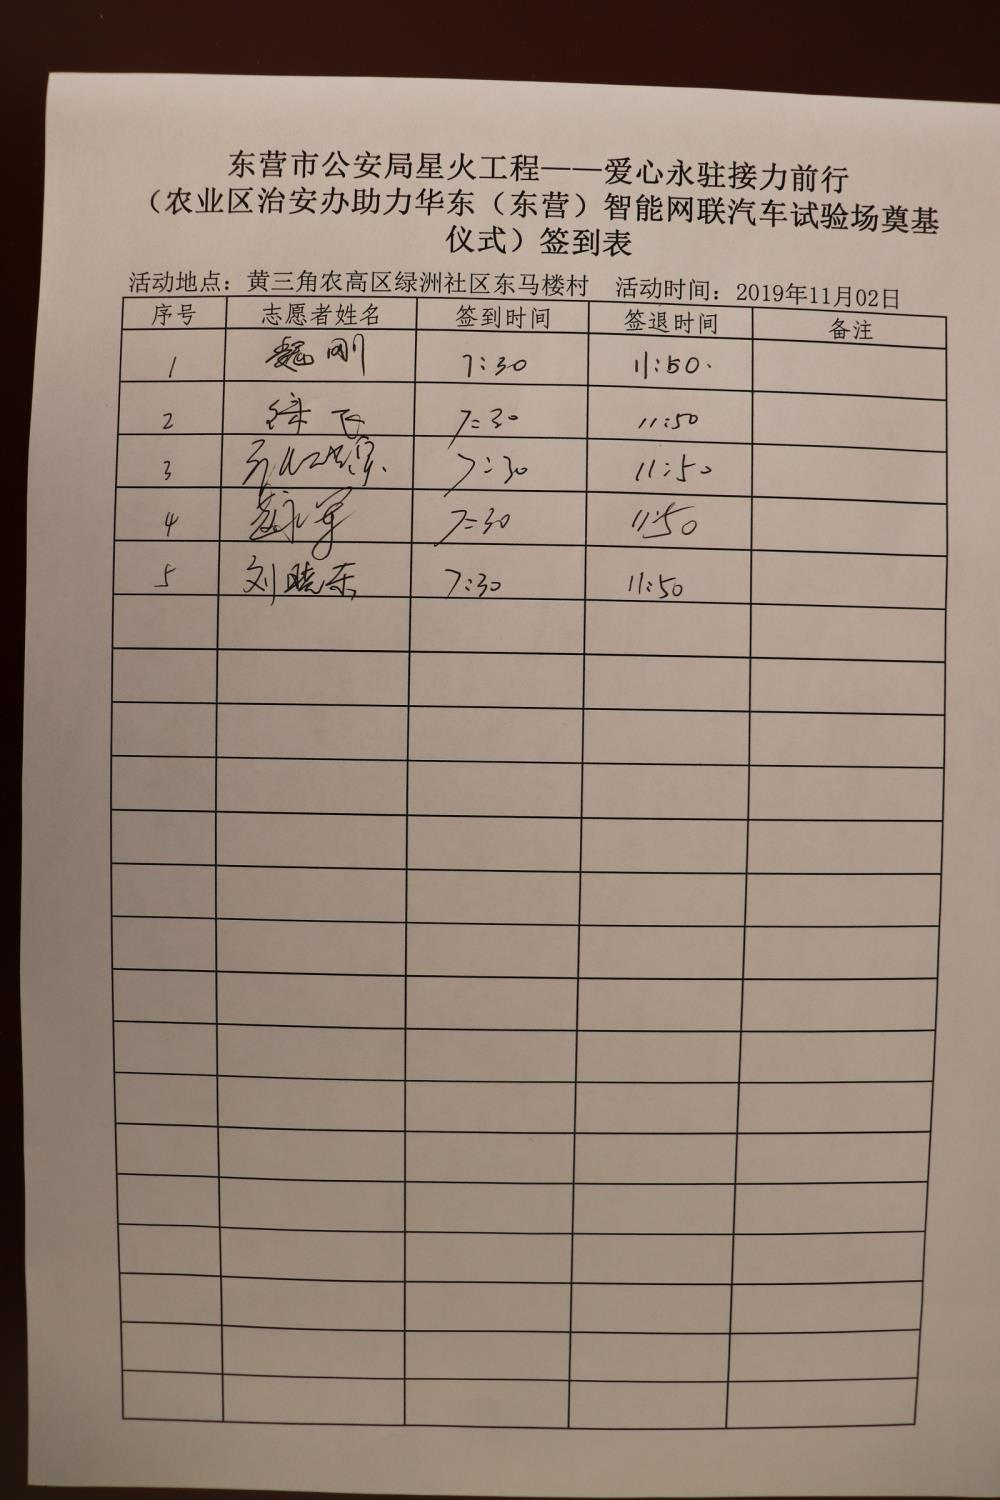 东营市公安局星火工程——爱心永驻接力前行
（农业区治安办助力华东（东营）智能网联汽车试验场奠基
仪式）签到表
活动地点：黄三角农高区绿洲社区东马楼村 活动时间：2019年11月02日
序号 志愿者姓名 签到时间 签退时间 备注
1 魏刚 7:30 11:50.
2 徐飞 7:30 11:50
3 7:30 11:50
4 7:30 11:50
5 刘晓东 7:30 11:50